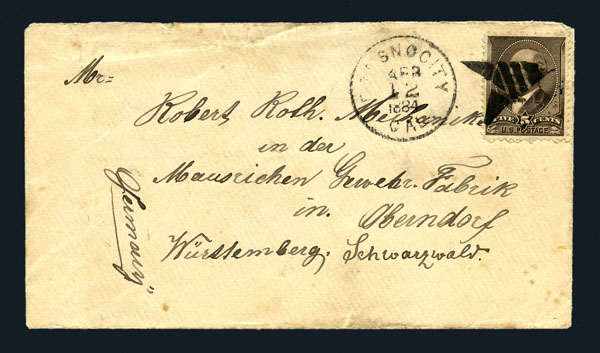 Mr=
FRESNO CITY
APR
12
1884
CAL
FIVE 5 CENTS
U.S. POSTAGE
Robert Roth. Mechanik
in der
Mausrichen Gewehr. Fabrik
in. Oberndorf
Württemberg, Schwarzwald.
Germany"